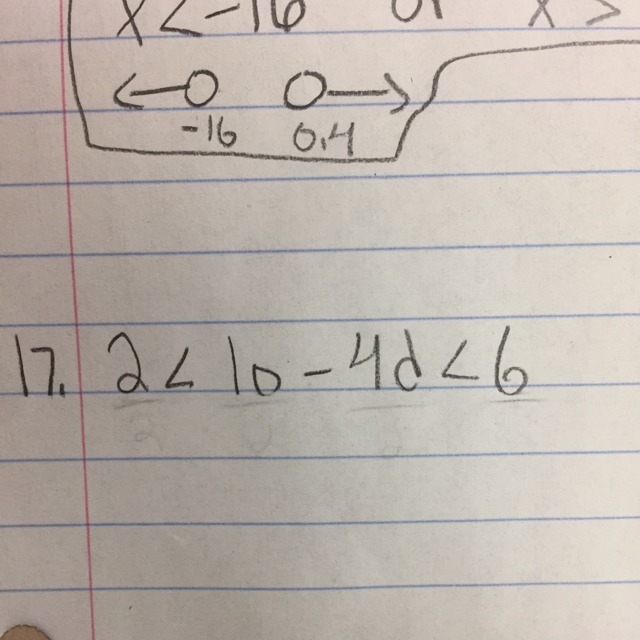 x < -16 or x >
-16 0.4
17. 2 < 10 - 4d < 6
2 2 2